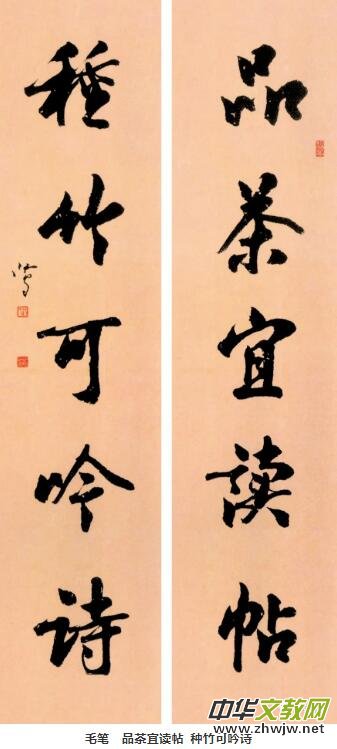 品茶宜讀帖
種竹可吟詩
毛笔 品茶宜读帖 种竹可吟诗
中华文教网
www.zhwjw.com